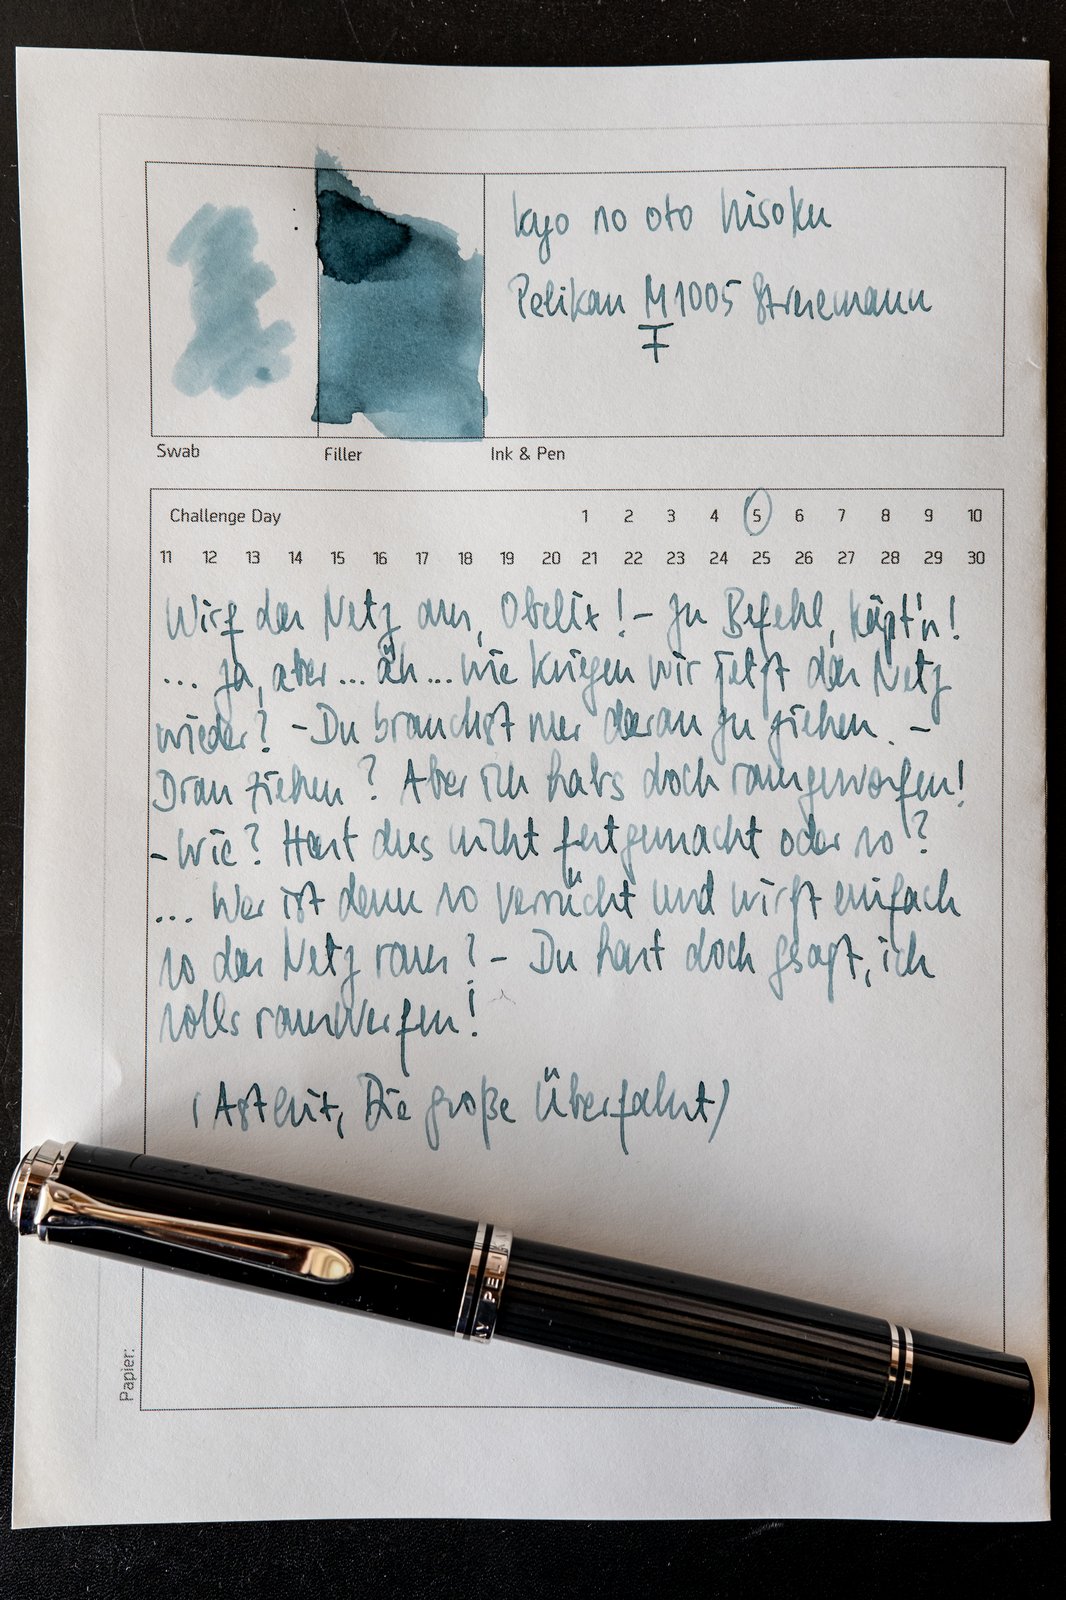 kyo no oto hisoku
Pelikan M1005 Stresemann
F
Swab Filler Ink & Pen
Challenge Day 1 2 3 4 5 6 7 8 9 10
11 12 13 14 15 16 17 18 19 20 21 22 23 24 25 26 27 28 29 30
Wirf das Netz aus, Obelix! – Zu Befehl, Käpt'n!
... Ja, aber ... äh ... wie kriegen wir jetzt das Netz
wieder? – Du brauchst nur daran zu ziehen. –
Dran ziehen? Aber ich habs doch rausgeworfen!
– Wie? Hast dus nicht festgemacht oder so?
... Wer ist denn so verrückt und wirft einfach
so das Netz raus? – Du hast doch gsagt, ich
solls rauswerfen!
(Asterix, Die große Überfahrt)
PELIKAN
Papier: